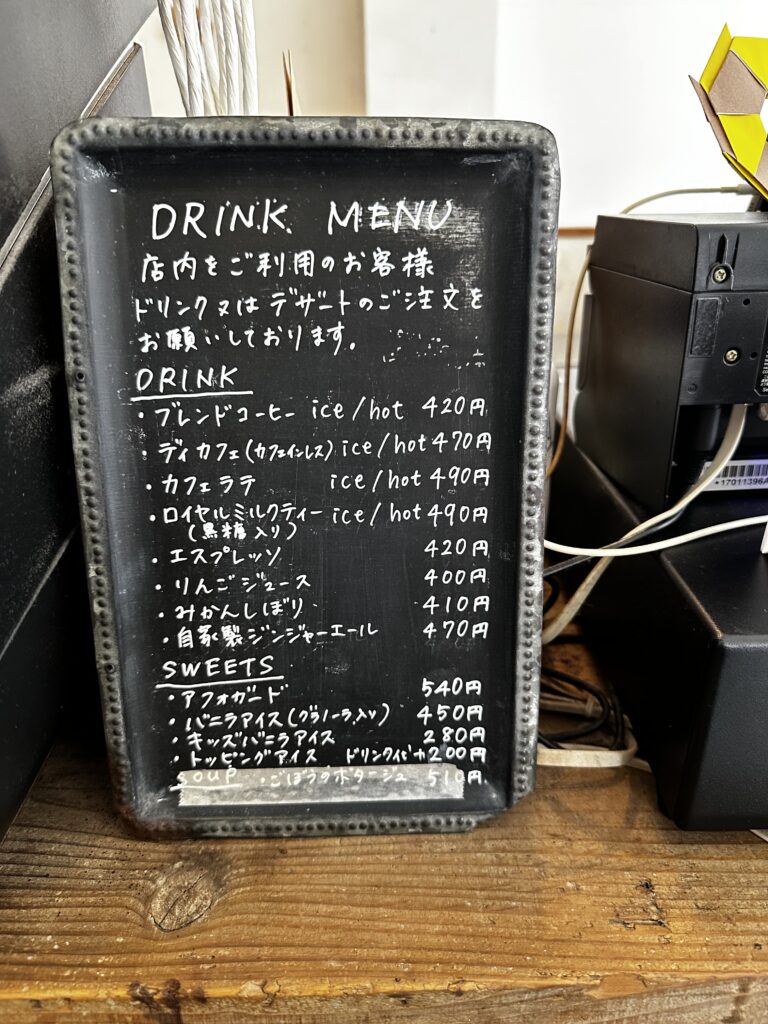 DRINK MENU
店内をご利用のお客様
ドリンク又はデザートのご注文を
お願いしております。
DRINK
・ブレンドコーヒー ice/hot 420円
・ディカフェ(カフェインレス) ice/hot 470円
・カフェラテ ice/hot 490円
・ロイヤルミルクティー ice/hot 490円
(黒糖入り)
・エスプレッソ 420円
・りんごジュース 400円
・みかんしぼり 410円
・自家製ジンジャーエール 470円
SWEETS
・アフォガード 540円
・バニラアイス(グラノーラ入り) 450円
・キッズバニラアイス 280円
・トッピングアイス 200円
SOUP ・ごぼうのポタージュ 510円
*17011396A